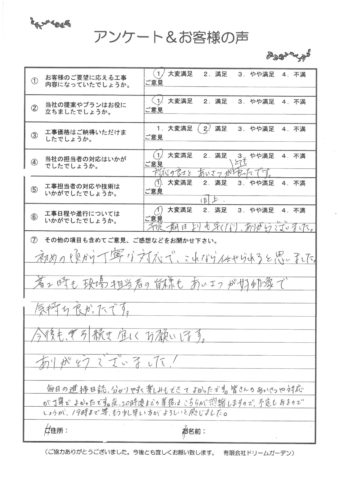 アンケート＆お客様の声
① お客様のご要望に応える工事内容になっていたでしょうか。 1. 大変満足 2. 満足 3. やや満足 4. 不満
ご意見
② 当社の提案やプランはお役に立ちましたでしょうか。 1. 大変満足 2. 満足 3. やや満足 4. 不満
ご意見
③ 工事価格はご納得いただけましたでしょうか。 1. 大変満足 2. 満足 3. やや満足 4. 不満
ご意見
④ 当社の担当者の対応はいかがでしたでしょうか。 1. 大変満足 2. 満足 3. やや満足 4. 不満
ご意見 あいさつが とてもよかったです。
⑤ 工事担当者の対応や技術はいかがでしたでしょうか。 1. 大変満足 2. 満足 3. やや満足 4. 不満
ご意見 同上
⑥ 工事日程や進行についてはいかがでしたでしょうか。 1. 大変満足 2. 満足 3. やや満足 4. 不満
ご意見 期日よりも早くなり、ありがとうございました。
⑦ その他の項目も含めてご意見、ご感想などをお聞かせ下さい。
初めの頃から丁寧な対応で、これなら任せられると思いました。
着工時も現場担当者の皆様も あいさつが好印象で
気持ち良かったです。
今後も引続き宜しくお願いします。
ありがとうございました！
毎日の進捗日誌、分かりやすく楽しみにできてよかったです。皆さんのあいさつや対応
が丁寧でよかったです。
ご住所： お名前：
（ご協力ありがとうございました。今後とも宜しくお願い致します。 有限会社ドリームガーデン）